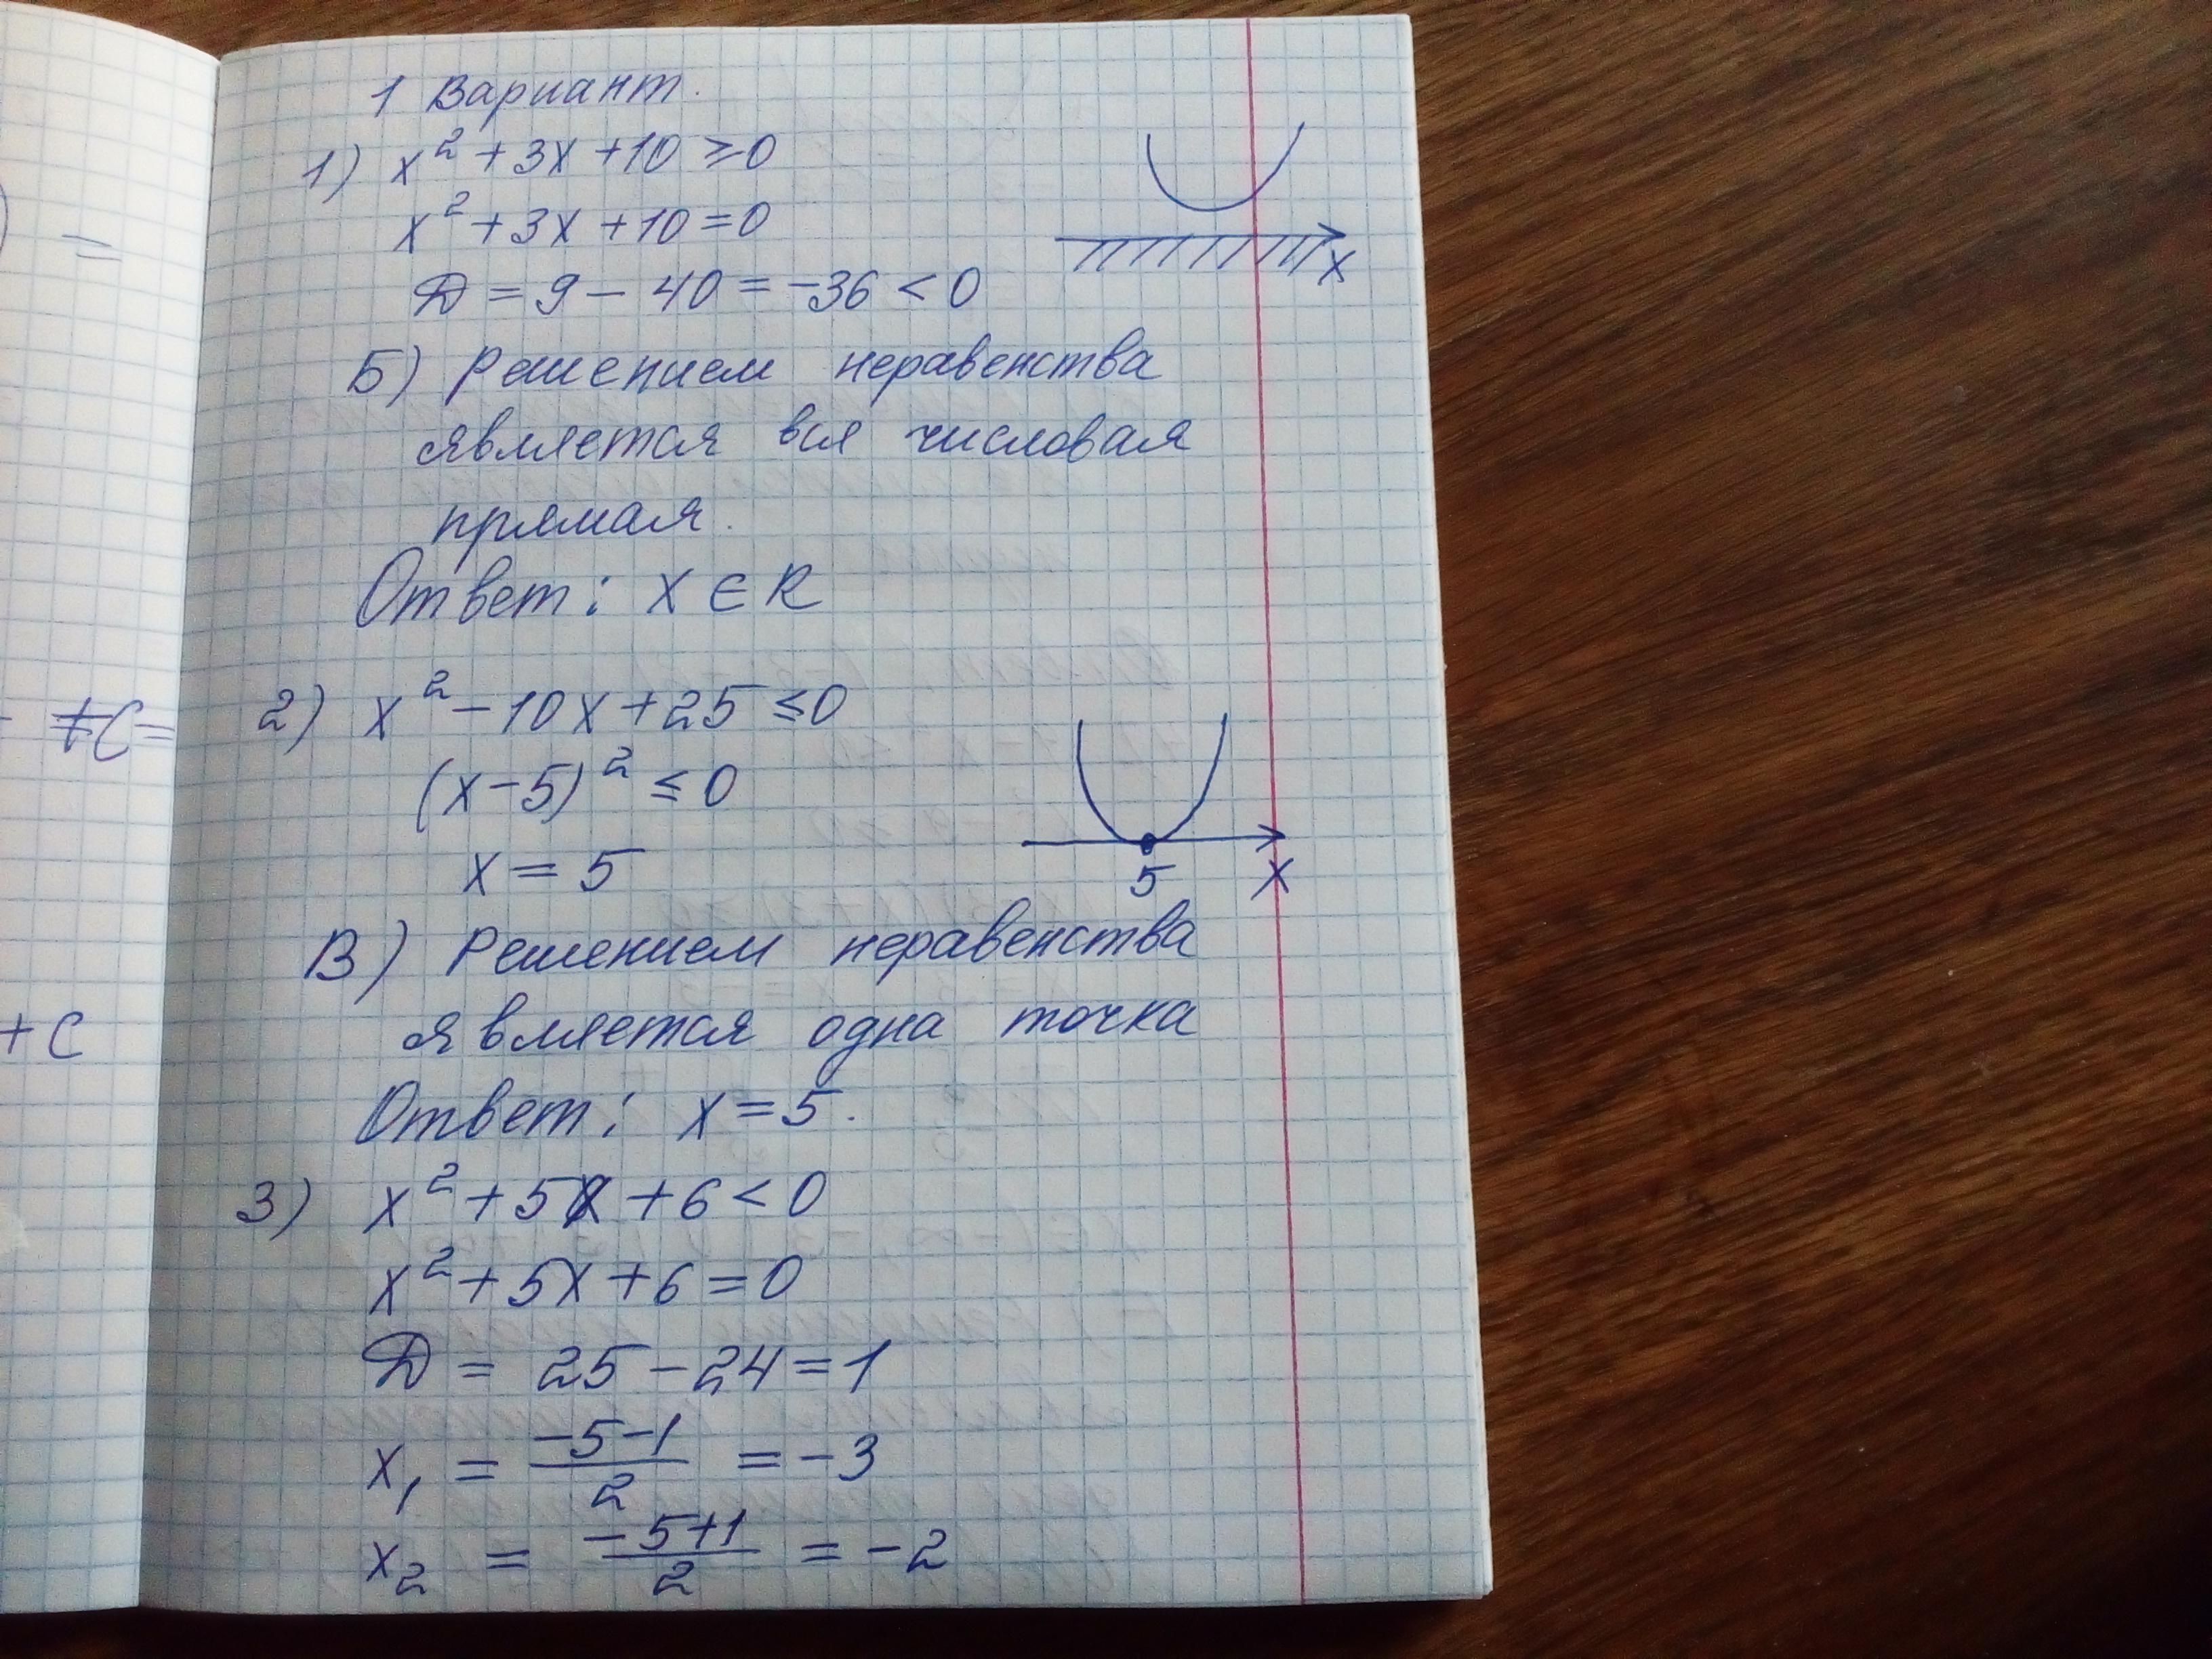 1 Вариант.
1) x² + 3x + 10 ≥ 0
x² + 3x + 10 = 0
Д = 9 - 40 = -36 < 0
x
Б) Решением неравенства
является вся числовая
прямая.
Ответ: x ∈ R
2) x² - 10x + 25 ≤ 0
(x - 5)² ≤ 0
x = 5
5 x
В) Решением неравенства
является одна точка
Ответ: x = 5.
3) x² + 5x + 6 < 0
x² + 5x + 6 = 0
Д = 25 - 24 = 1
x₁ = (-5-1)/2 = -3
x₂ = (-5+1)/2 = -2
=
+C=
+C